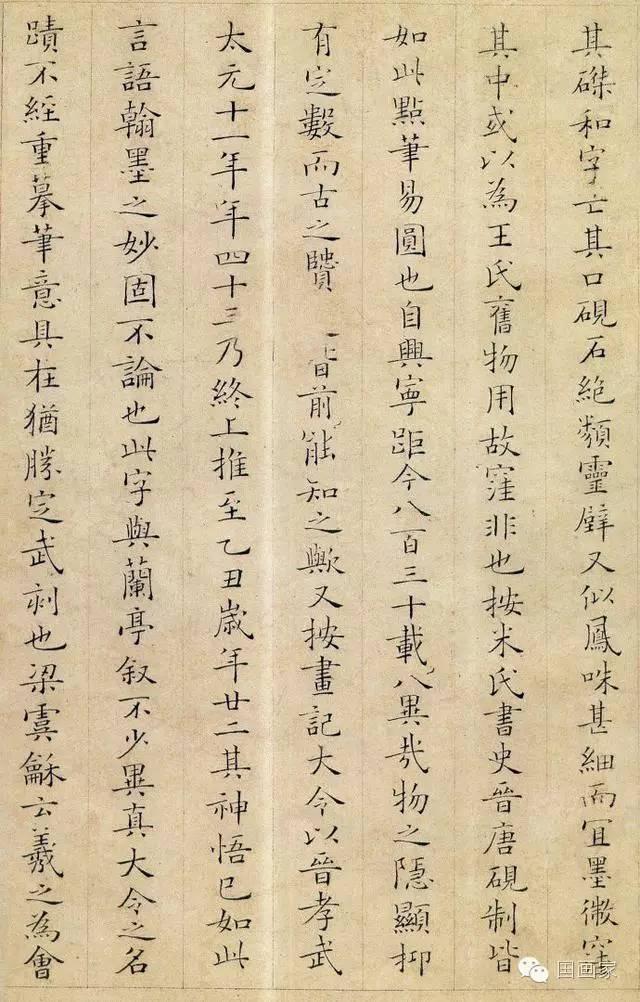 其磔和字亡其口硯石絶類靈璧又似鳳咮甚細而宜墨微窪
其中或以為王氏舊物用故窪非也按米氏書史晉唐硯制皆
如此點筆易圓也自興寧距今八百三十載八異哉物之隱顯抑
有定數而古之賢 昔前能知之歟又按畫記大令以晉孝武
太元十一年年四十三乃終上推至乙丑歲年廿二其神悟已如此
言語翰墨之妙固不論也此字與蘭亭叙不少異真大令之名
蹟不經重摹筆意具在猶勝定武刻也梁虞龢云羲之為會
国画家